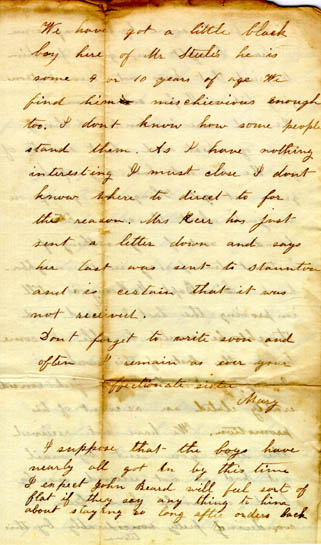 We have got a little black
boy here of Mr Steele's he is
some 9 or 10 years of age We
find him mischievious enough
too. I dont know how some people
stand them. As I have nothing
interesting I must close I dont
know where to direct to for
the reason. Mrs Kerr has just
sent a letter down and says
her last was sent to Staunton
and is certain that it was
not received.
Dont forget to write soon and
often I remain as ever your
affectionate sister
Mary
I suppose that the boys have
nearly all got in by this time
I expect John Beard will feel sort of
flat if they say any thing to him
about staying so long after orders back